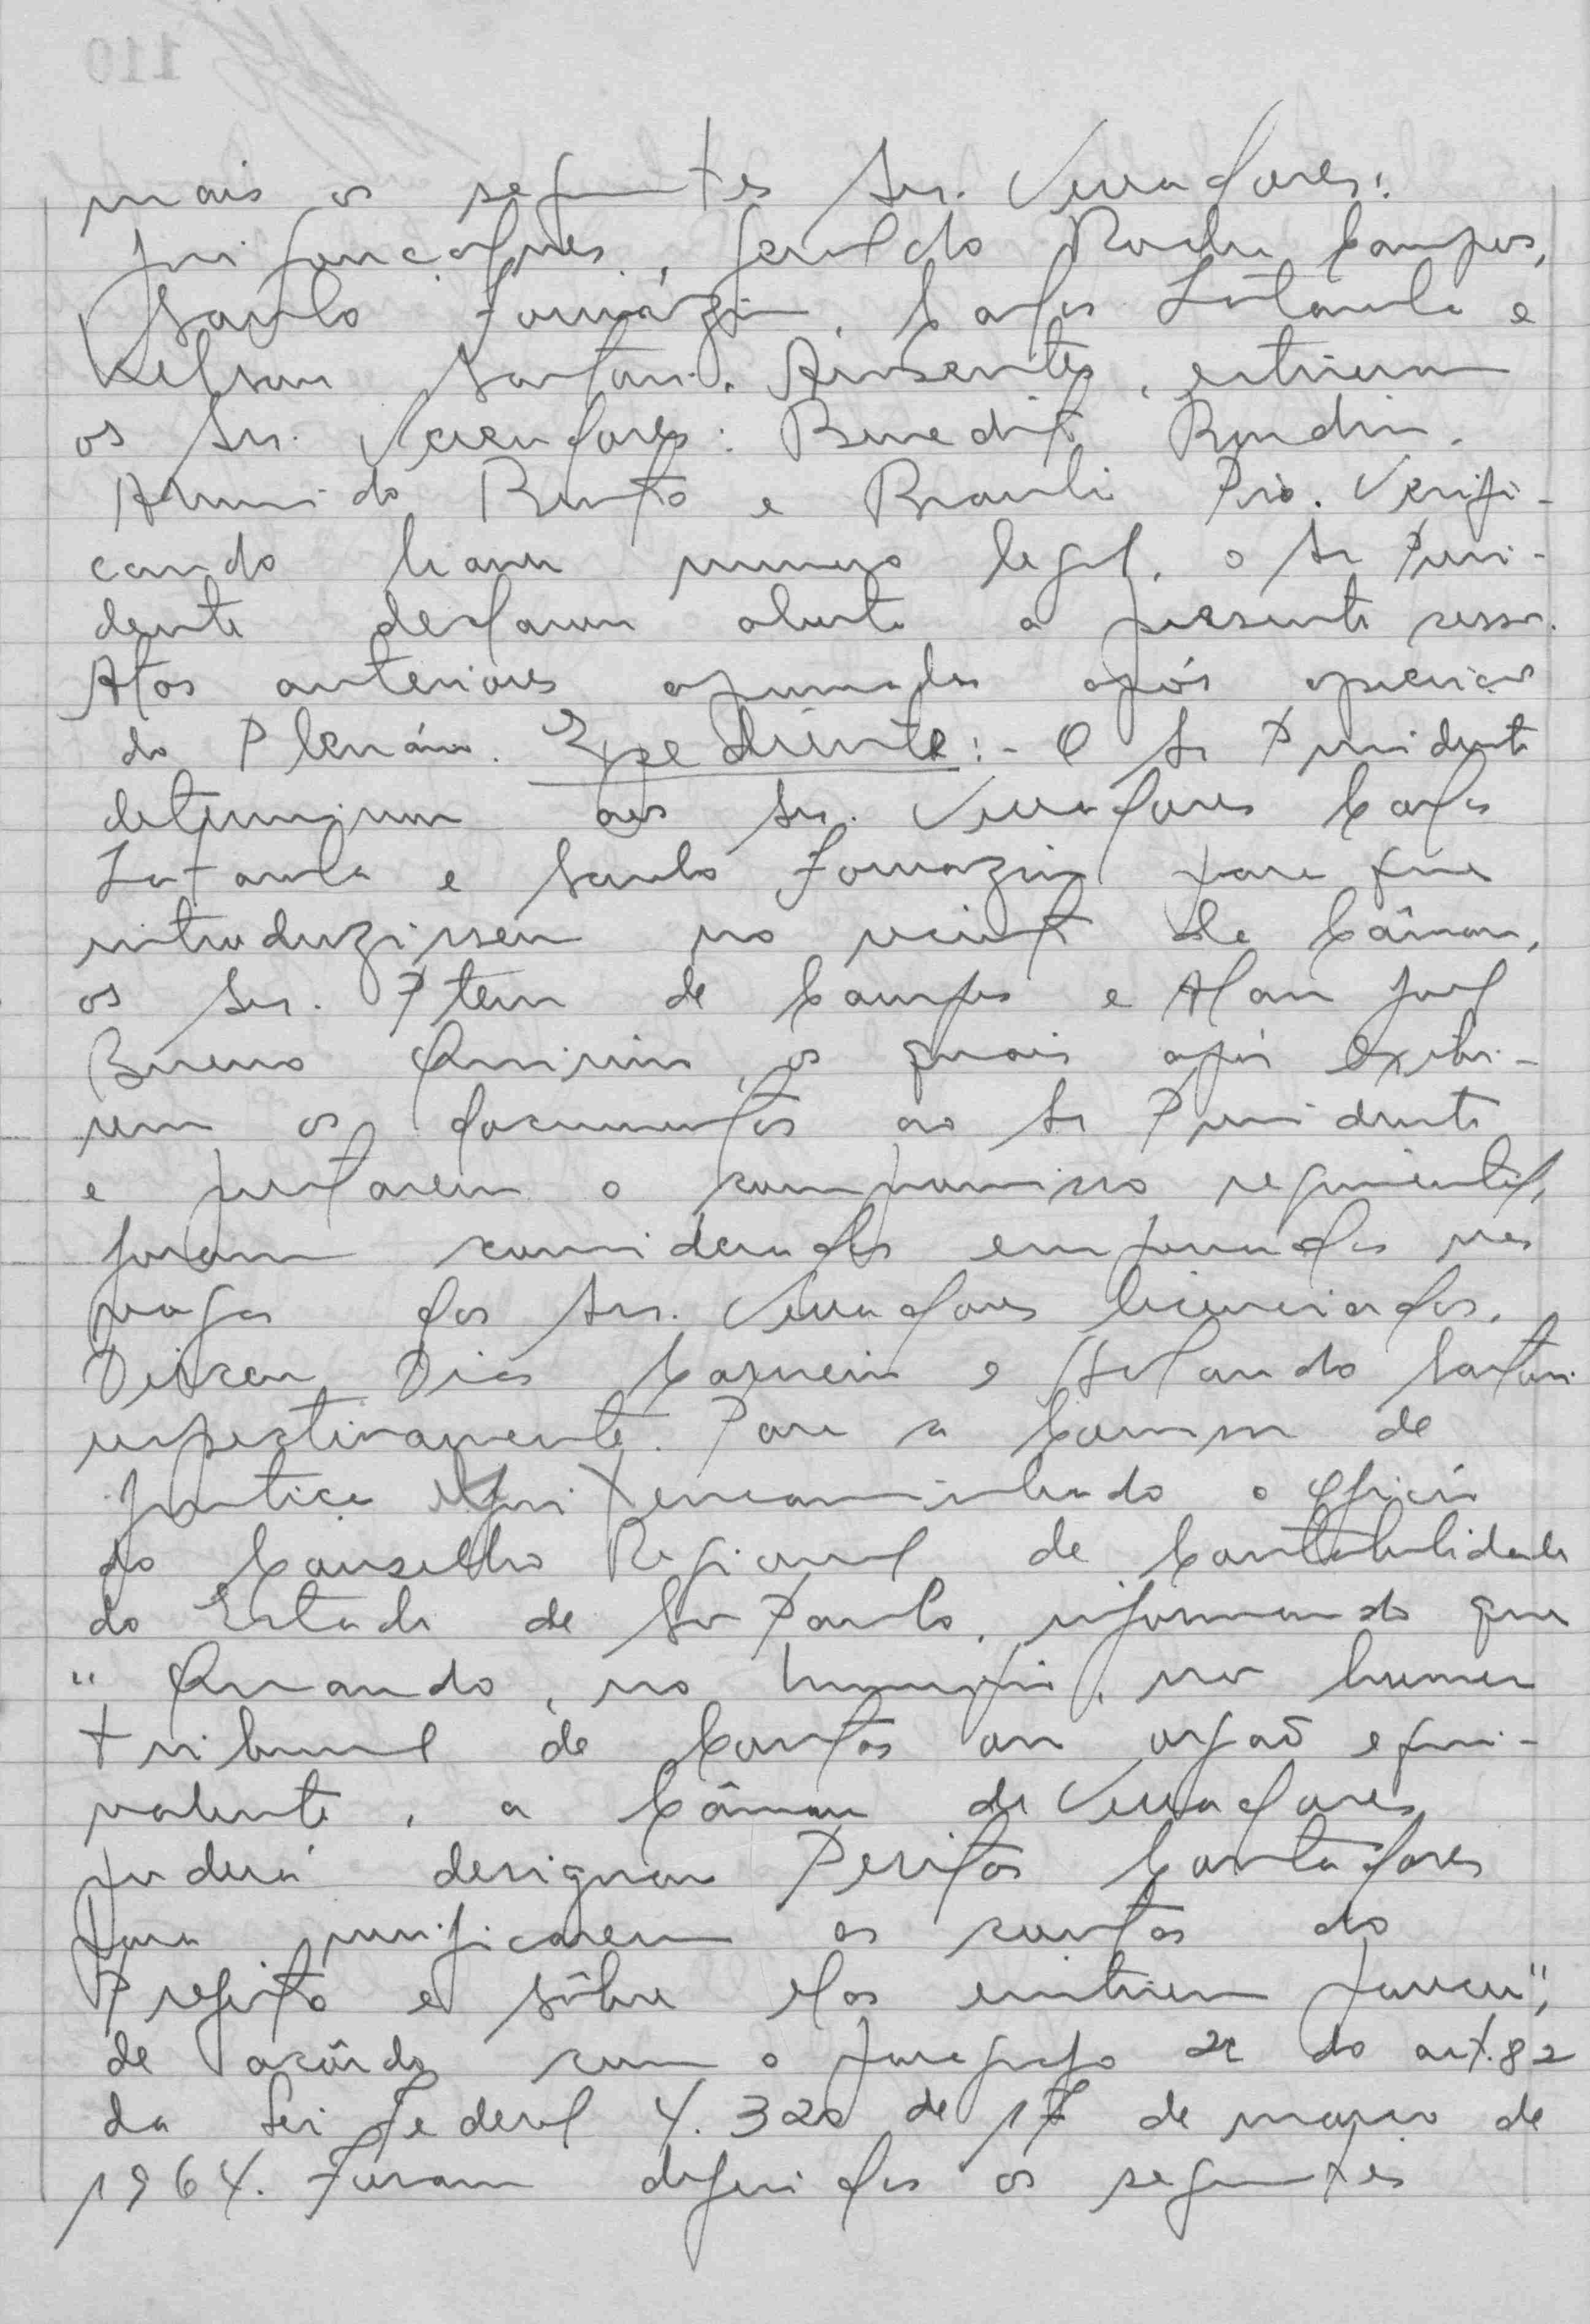 mais os seguintes Srs. Vereadores:
Gonçalves, Geraldo Rocha Campos,
Saulo Fomázin, Carlos Lotaula e
Nelson Santari. Ausentes, estiveram
os Srs. Vereadores: Benedito Rondin,
Armindo Bento e Braulio Pio. Verifi-
cando haver numero legal, o Sr Presi-
dente declarou aberta a presente sessão.
Atas anteriores aprovadas após apreciação
do Plenário. Expediente:- O Sr Presidente
determinou aos Srs. Vereadores Carlos
Lotaula e Saulo Fomazin para que
introduzissem no recinto da Câmara,
os Srs. Ptem de Campos e Alan José
Bueno Quirino, os quais após exibi-
rem os documentos ao Sr Presidente
e prestarem o compromisso regimental,
foram considerados empossados nas
vagas dos Srs. Vereadores licenciados,
Dirceu Dias Carneiro e Orlando Santari
respectivamente. Para a Comissão de
Justiça foi encaminhado o oficio
do Conselho Regional de Contabilidade
do Estado de São Paulo, informando que
" Quando, no município, não houver
tribunal de Contas ou orgaõ equi-
valente, a Câmara de Vereadores
poderá designar Peritos Contadores
para verificarem as contas do
Prefeito e sôbre elas emitirem parecer",
de acôrdo com o paragrafo 2º do art. 82
da Lei Federal 4.320 de 17 de março de
1964. Foram deferidos os seguintes